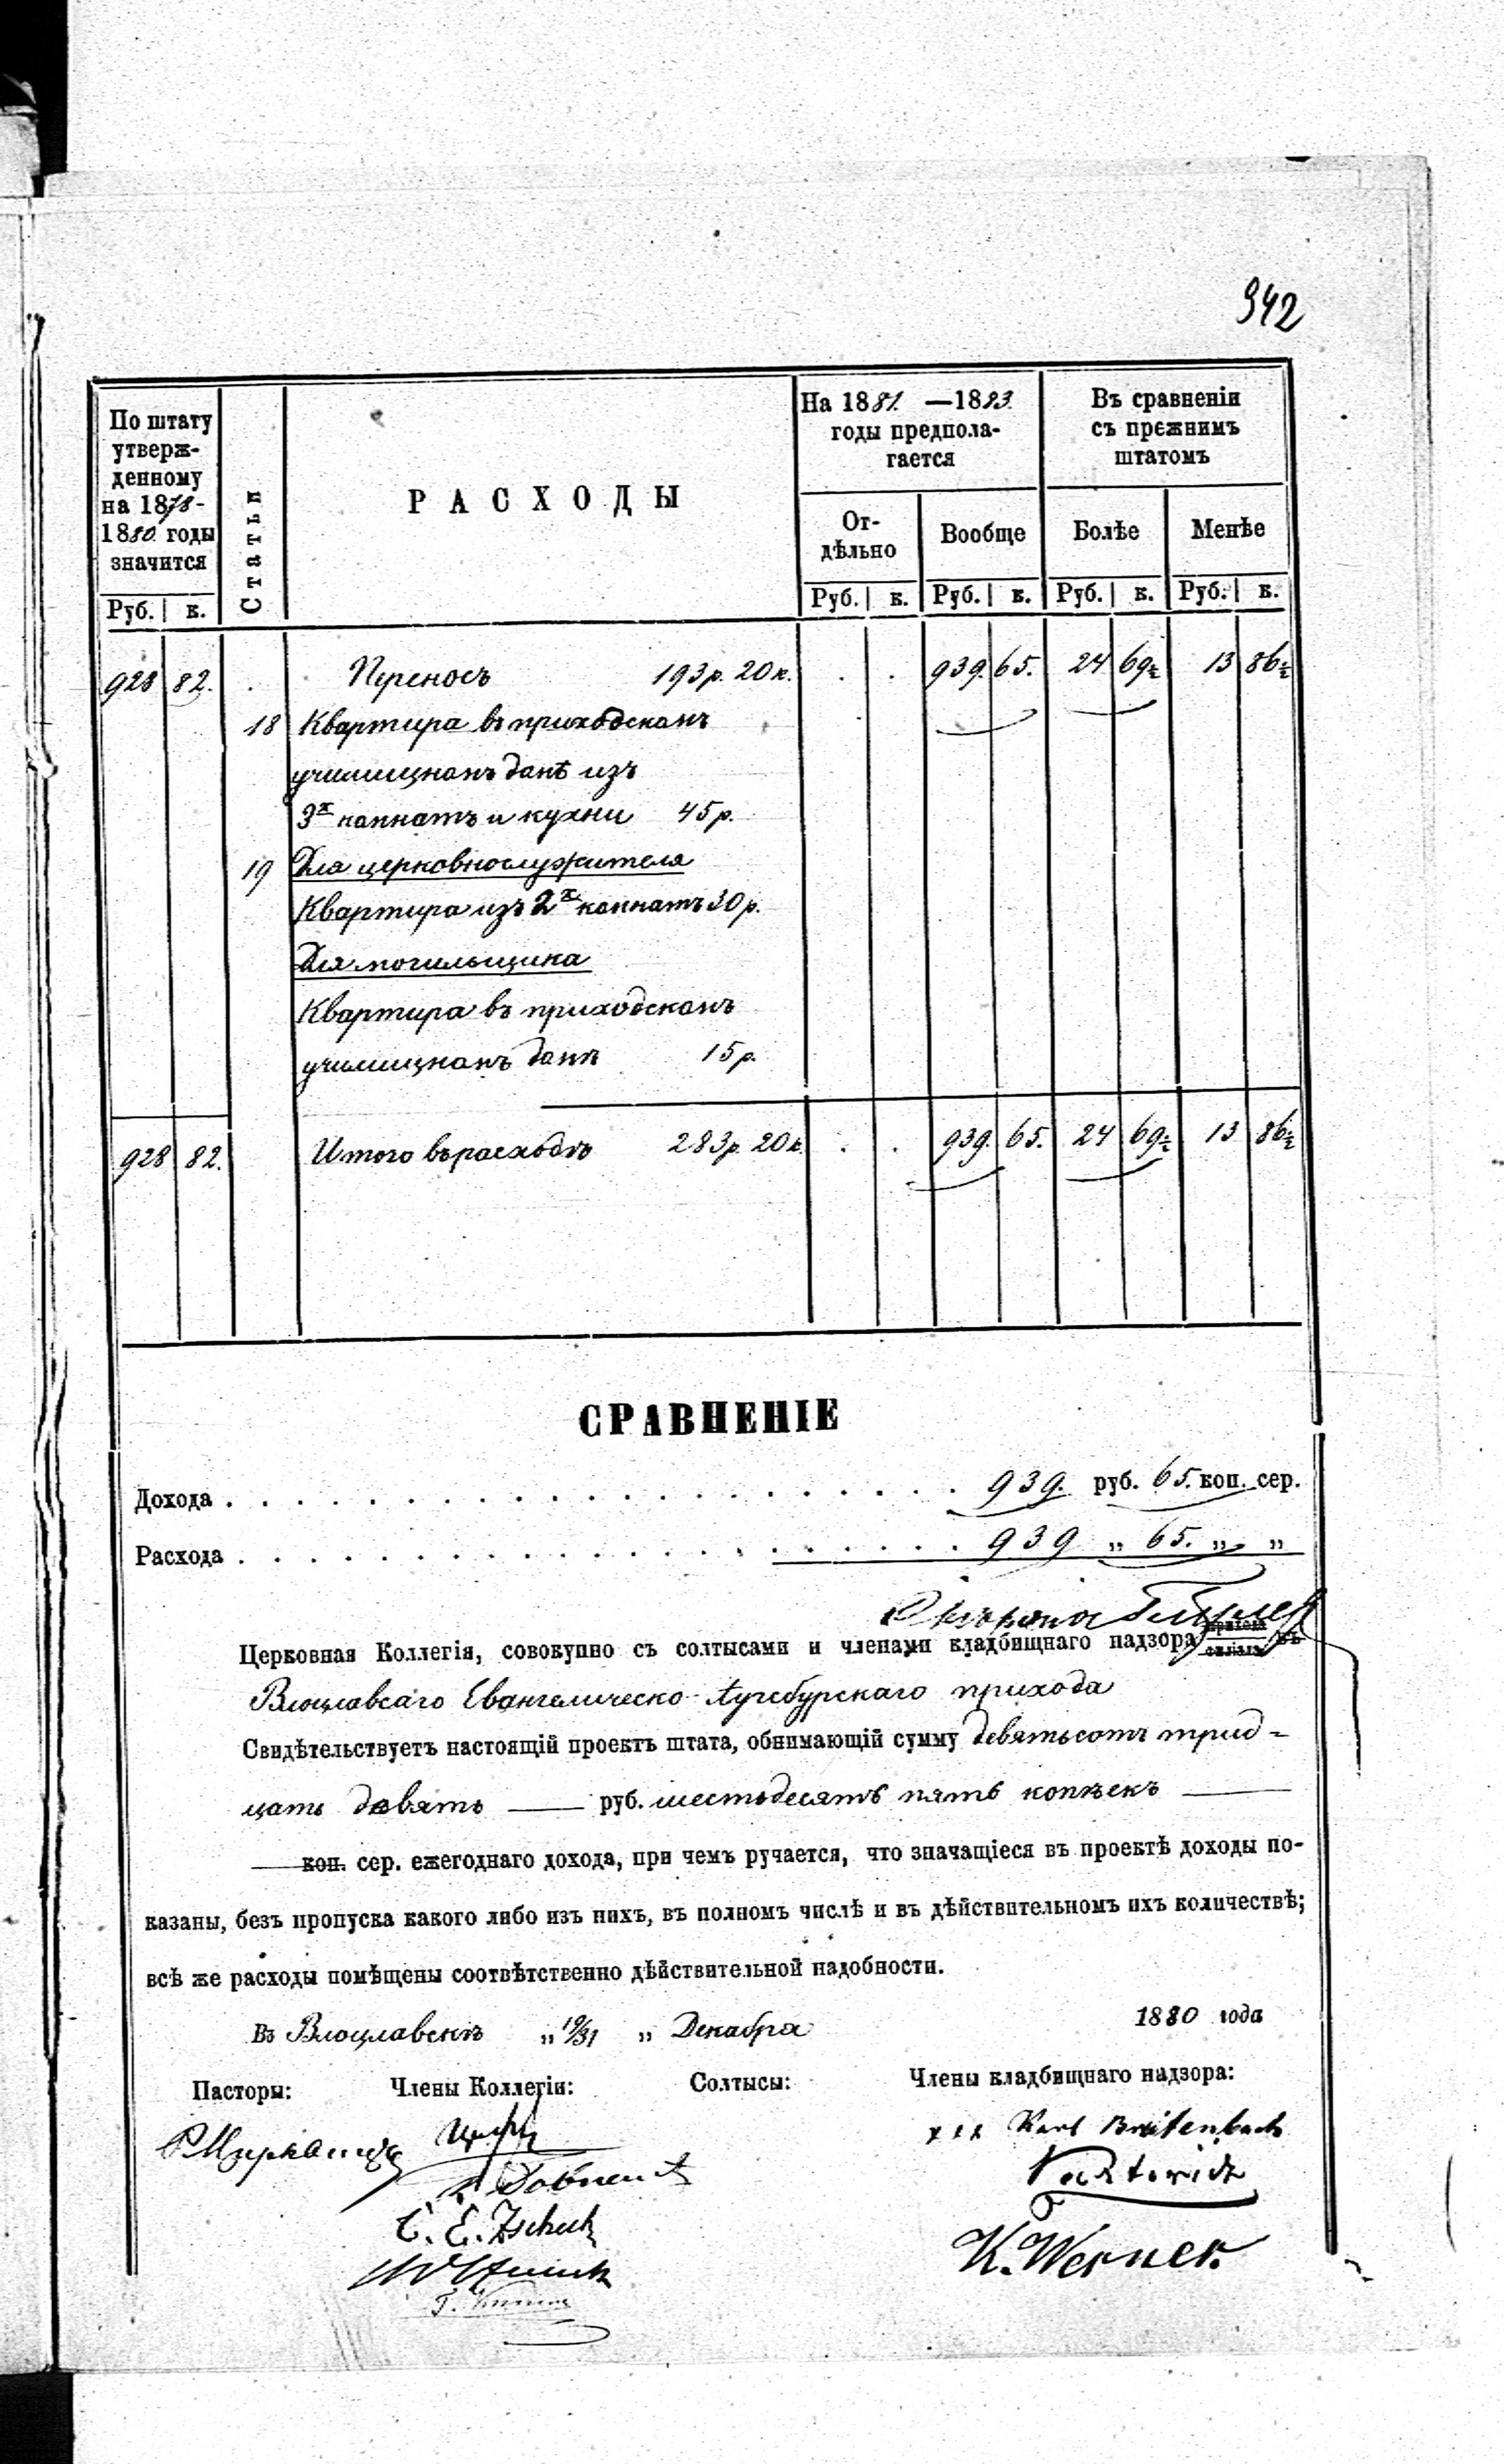 942
По штату утверж-денному на 1878-1880 годы значится
Статьи
РАСХОДЫ
На 1881. —1883. годы предпола-гается
Въ сравненіи съ прежнимъ штатомъ
От-дѣльно
Вообще
Болѣе
Менѣе
Руб. к. Руб. к. Руб. к. Руб. к. Руб. к.
928 82. . Переносъ 193 р. 20 к. . . 939. 65. 24 69½ 13 86½
18 Квартира въ приходскомъ
училищномъ домѣ изъ
3х комнатъ и кухни 45 р.
19 Для церковнослужителя
Квартира изъ 2х комнатъ 30 р.
Для могильщика
Квартира въ приходскомъ
училищномъ домѣ 15 р.
928 82. Итого въ расходѣ 283 р. 20 к. . . 939. 65. 24 69½ 13 86½
СРАВНЕНІЕ
Дохода . . . 939. руб. 65. коп. сер.
Расхода . . . 939 „ 65. „ „
Церковная Коллегія, совокупно съ солтысами и членами кладбищнаго надзора въ
Влоцлавскаго Евангелическо-Аугсбурскаго прихода
Свидѣтельствуетъ настоящій проектъ штата, обнимающій сумму девятьсотъ трид-
цать девять —— руб. шестьдесятъ пять копѣекъ ——
—— коп. сер. ежегоднаго дохода, при чемъ ручается, что значащіеся въ проектѣ доходы по-
казаны, безъ пропуска какого либо изъ нихъ, въ полномъ числѣ и въ дѣйствительномъ ихъ количествѣ;
всѣ же расходы помѣщены соотвѣтственно дѣйствительной надобности.
Въ Влоцлавскѣ „ 19/31 „ Декабра 1880 года
Пасторы: Члены Коллегіи: Солтысы: Члены кладбищнаго надзора:
xxx Karl Breitenbach
C. E. Zschuck
K. Werner.